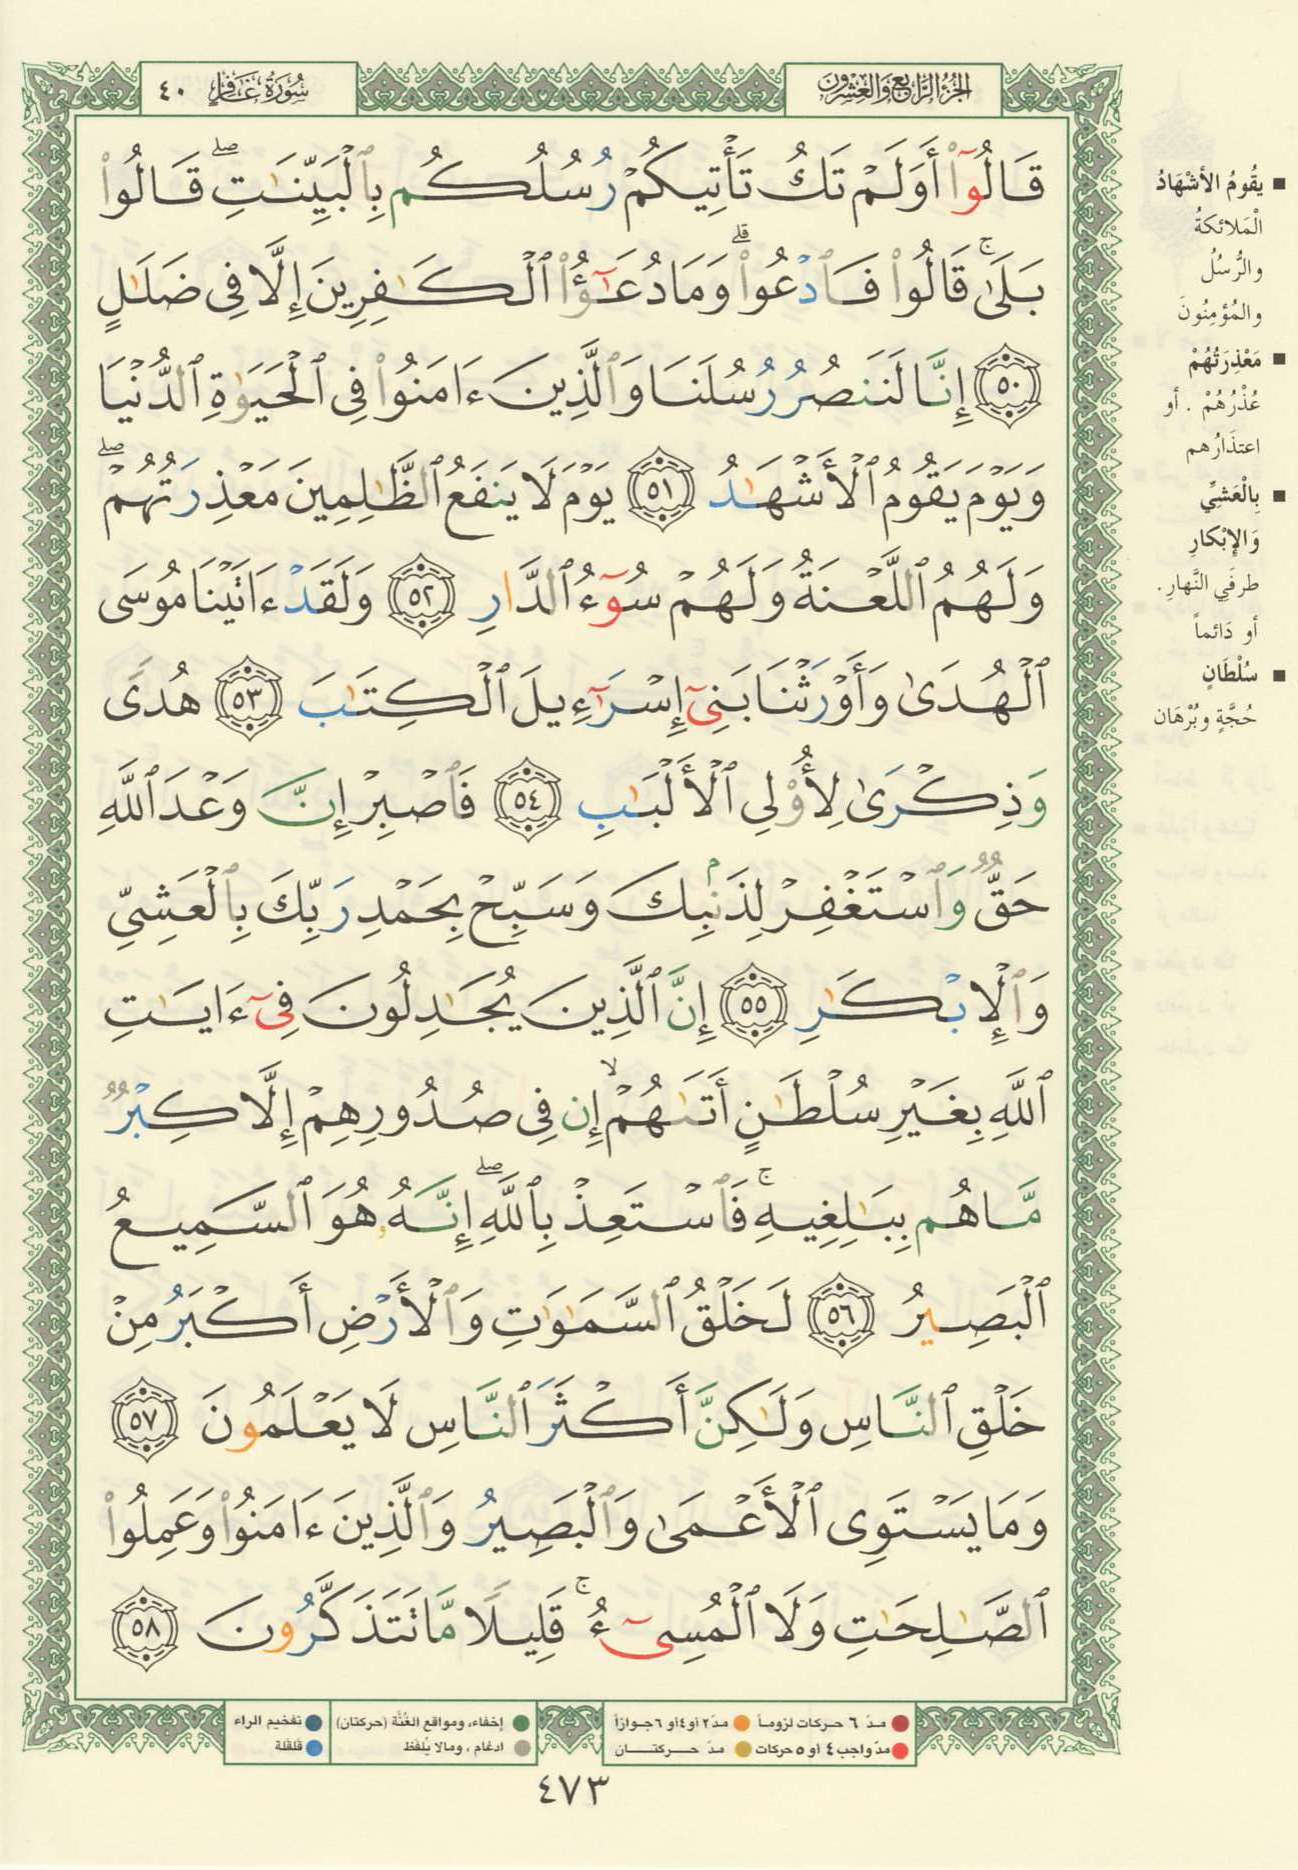 الجزء الرابع والعشرون
سورة غافر ٤٠
قَالُوٓا۟ أَوَلَمْ تَكُ تَأْتِيكُمْ رُسُلُكُم بِٱلْبَيِّنَـٰتِ ۖ قَالُوا۟
بَلَىٰ ۚ قَالُوا۟ فَٱدْعُوا۟ ۗ وَمَا دُعَـٰٓؤُا۟ ٱلْكَـٰفِرِينَ إِلَّا فِى ضَلَـٰلٍ
٥٠ إِنَّا لَنَنصُرُ رُسُلَنَا وَٱلَّذِينَ ءَامَنُوا۟ فِى ٱلْحَيَوٰةِ ٱلدُّنْيَا
وَيَوْمَ يَقُومُ ٱلْأَشْهَـٰدُ ٥١ يَوْمَ لَا يَنفَعُ ٱلظَّـٰلِمِينَ مَعْذِرَتُهُمْ ۖ
وَلَهُمُ ٱللَّعْنَةُ وَلَهُمْ سُوٓءُ ٱلدَّارِ ٥٢ وَلَقَدْ ءَاتَيْنَا مُوسَى
ٱلْهُدَىٰ وَأَوْرَثْنَا بَنِىٓ إِسْرَٰٓءِيلَ ٱلْكِتَـٰبَ ٥٣ هُدًى
وَذِكْرَىٰ لِأُو۟لِى ٱلْأَلْبَـٰبِ ٥٤ فَٱصْبِرْ إِنَّ وَعْدَ ٱللَّهِ
حَقٌّ وَٱسْتَغْفِرْ لِذَنۢبِكَ وَسَبِّحْ بِحَمْدِ رَبِّكَ بِٱلْعَشِىِّ
وَٱلْإِبْكَـٰرِ ٥٥ إِنَّ ٱلَّذِينَ يُجَـٰدِلُونَ فِىٓ ءَايَـٰتِ
ٱللَّهِ بِغَيْرِ سُلْطَـٰنٍ أَتَىٰهُمْ ۙ إِن فِى صُدُورِهِمْ إِلَّا كِبْرٌ
مَّا هُم بِبَـٰلِغِيهِ ۚ فَٱسْتَعِذْ بِٱللَّهِ ۖ إِنَّهُۥ هُوَ ٱلسَّمِيعُ
ٱلْبَصِيرُ ٥٦ لَخَلْقُ ٱلسَّمَـٰوَٰتِ وَٱلْأَرْضِ أَكْبَرُ مِنْ
خَلْقِ ٱلنَّاسِ وَلَـٰكِنَّ أَكْثَرَ ٱلنَّاسِ لَا يَعْلَمُونَ ٥٧
وَمَا يَسْتَوِى ٱلْأَعْمَىٰ وَٱلْبَصِيرُ وَٱلَّذِينَ ءَامَنُوا۟ وَعَمِلُوا۟
ٱلصَّـٰلِحَـٰتِ وَلَا ٱلْمُسِىٓءُ ۚ قَلِيلًا مَّا تَتَذَكَّرُونَ ٥٨
يَقُومُ الأَشْهَادُ
الْمَلائكةُ
والرُّسُلُ
والمُؤمِنُونَ
مَعْذِرَتُهُمْ
عُذْرُهُمْ . أو
اعتذَارُهم
بِالْعَشِيِّ
وَالإِبْكارِ
طرفَيِ النَّهارِ .
أو دَائماً
سُلْطَانٍ
حُجَّةٍ وبُرْهَان
مدّ ٦ حركات لزوماً مدّ٢ أو٤أو ٦جوازاً
مدّ واجب٤ أو ٥ حركات مدّ حركتان
إخفاء، ومواقع الغُنَّة (حركتان) تفخيم الراء
ادغام ، ومالا يُلفَظ قلقلة
٤٧٣